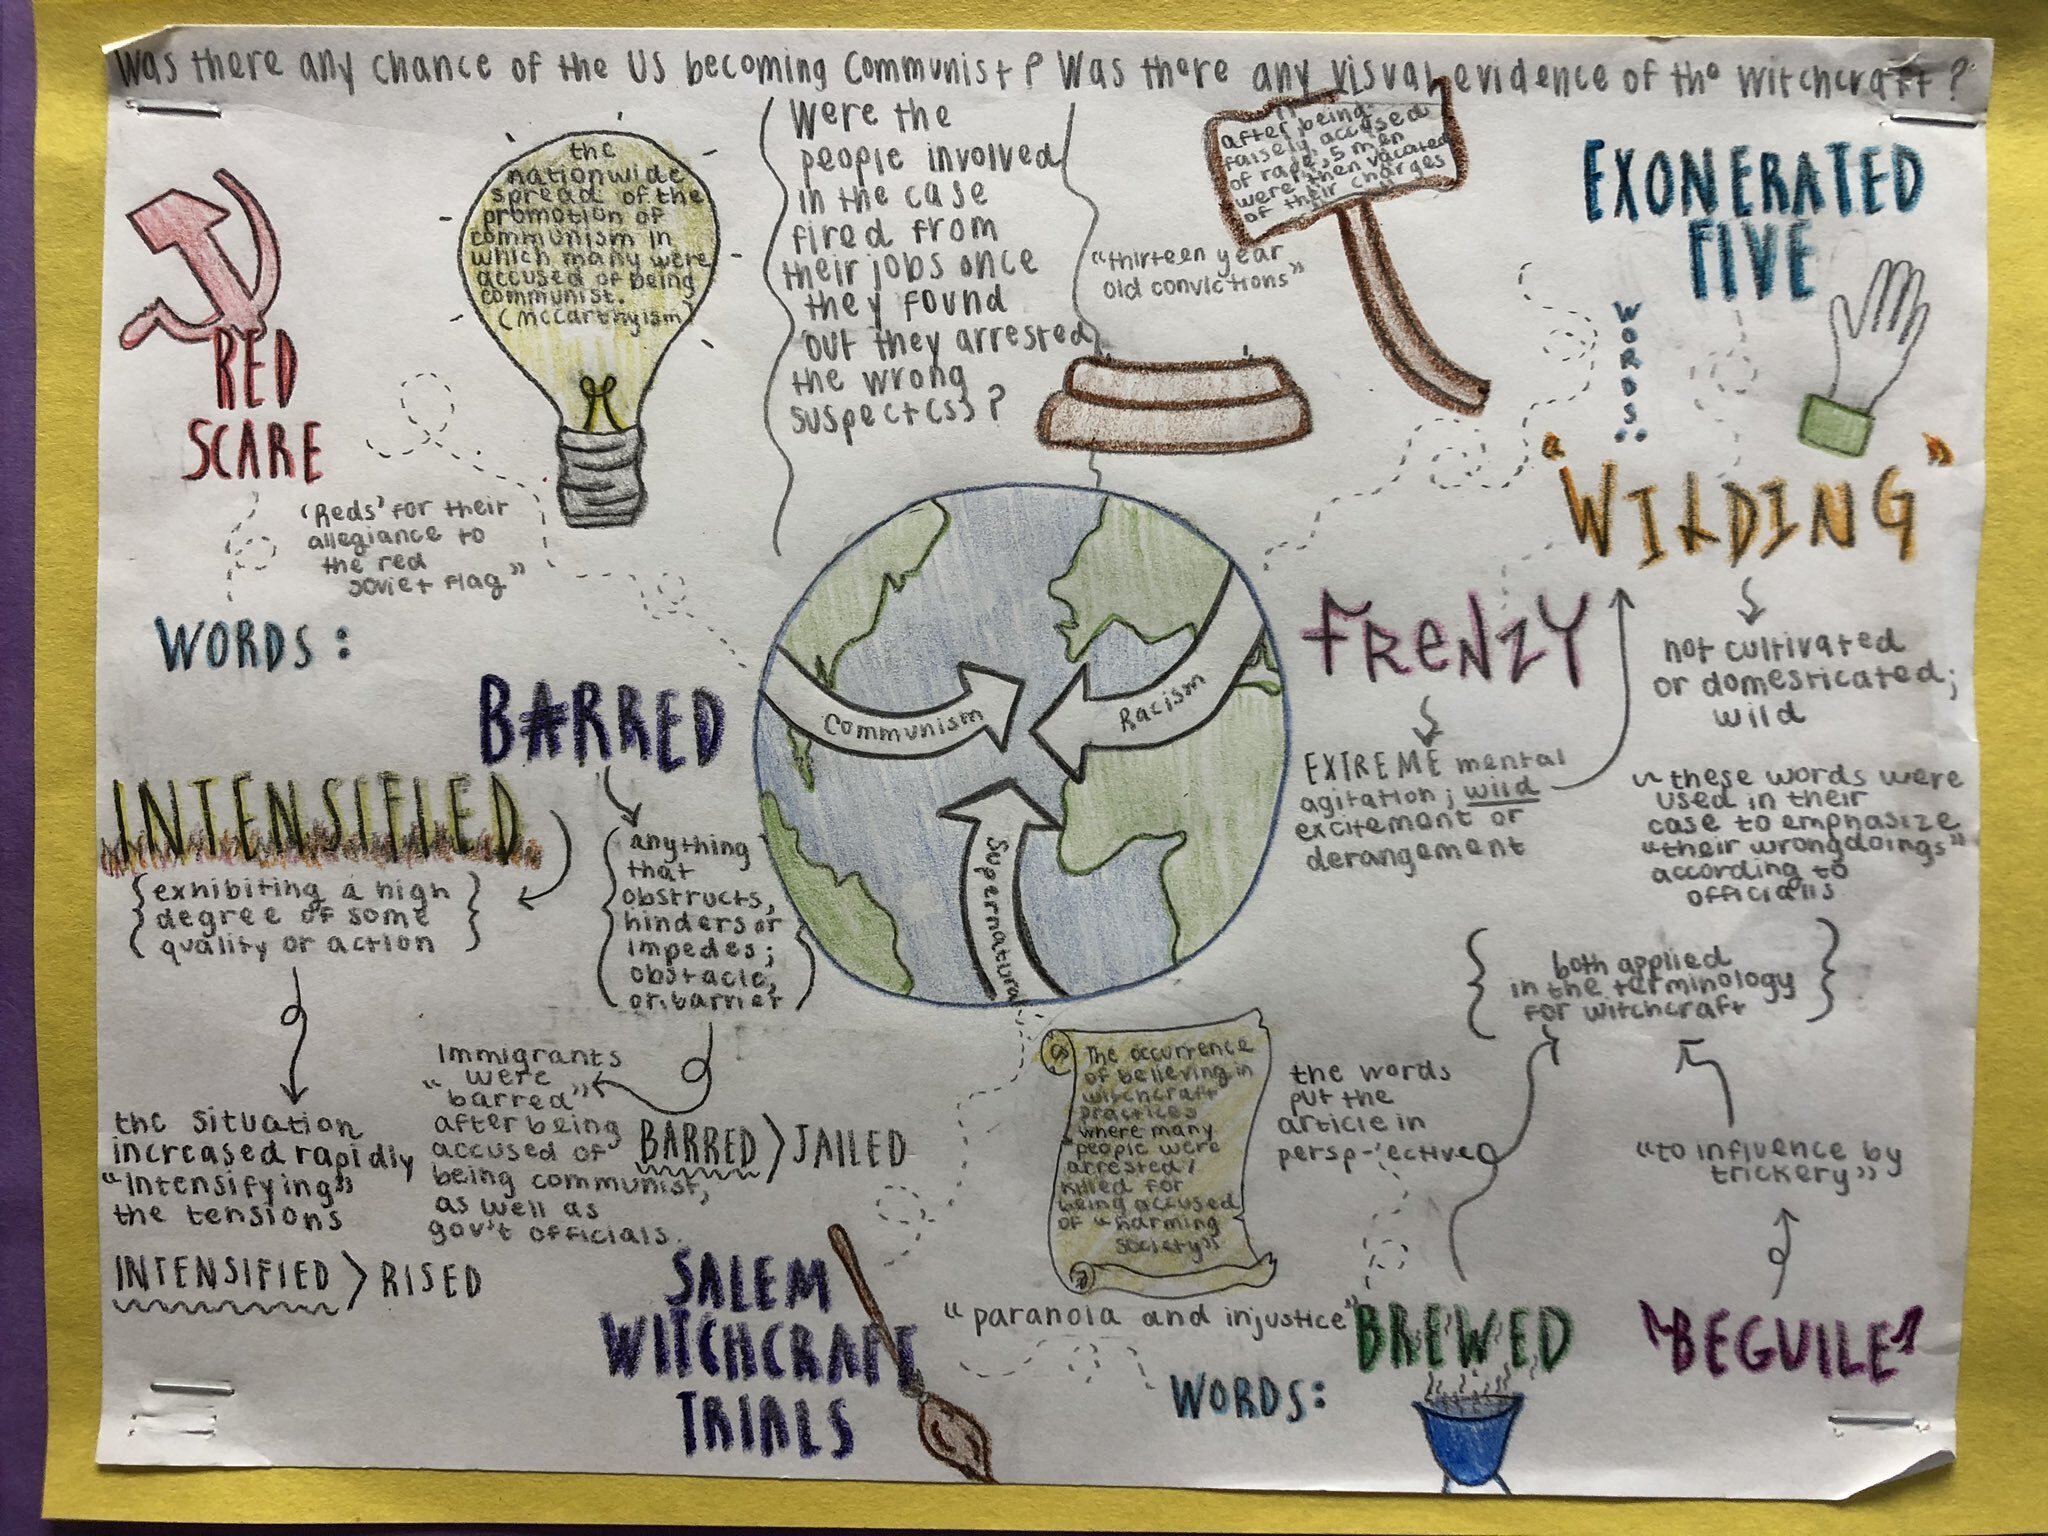 Was there any chance of the US becoming Communist? Was there any visual evidence of the witchcraft?
RED
SCARE
the
nationwide
spread of the
promotion of
communism in
which many were
accused of being
communist.
(McCarthyism)
Were the
people involved
in the case
fired from
their jobs once
they found
out they arrested
the wrong
suspect(s)?
after being
falsely accused
of rape, 5 men
were then vacated
of their charges
"thirteen year
old convictions"
EXONERATED
FIVE
WORDS:
"WILDING"
not cultivated
or domesticated;
wild
~ these words were
used in their
case to emphasize
"their wrongdoings"
according to
officials
FRENZY
EXTREME mental
agitation; wild
excitement or
derangement
'Reds' for their
allegiance to
the red
soviet flag"
WORDS:
BARRED
anything
that
obstructs,
hinders or
impedes;
obstacle,
or barrier
INTENSIFIED
{exhibiting a high
degree of some
quality or action}
the situation
increased rapidly
"intensifying"
the tensions
INTENSIFIED > RISED
Immigrants
were
"barred"
after being
accused of
being communist,
as well as
gov't officials.
BARRED > JAILED
Communism
Racism
Supernatural
SALEM
WITCHCRAFT
TRIALS
The occurrence
of believing in
witchcraft
practices
where many
people were
arrested/
killed for
being accused
of "harming
society"
"paranoia and injustice"
WORDS:
the words
put the
article in
persp-ective
both applied
in the terminology
for witchcraft
"to influence by
trickery"
BREWED
"BEGUILE"